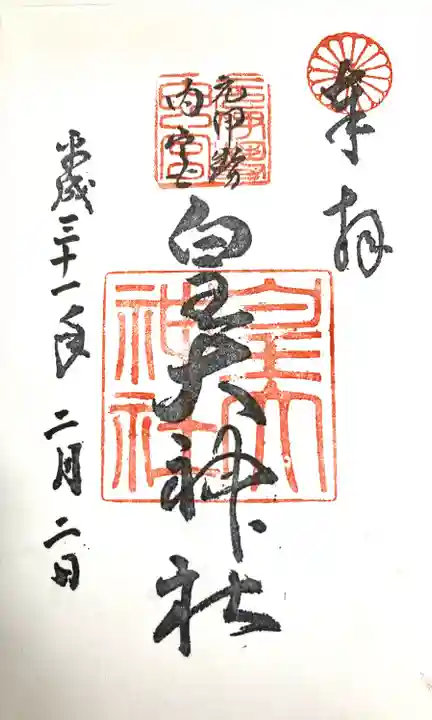 奉拝
元伊勢
内宮
皇大神社
皇大
神社
平成三十一年二月二日